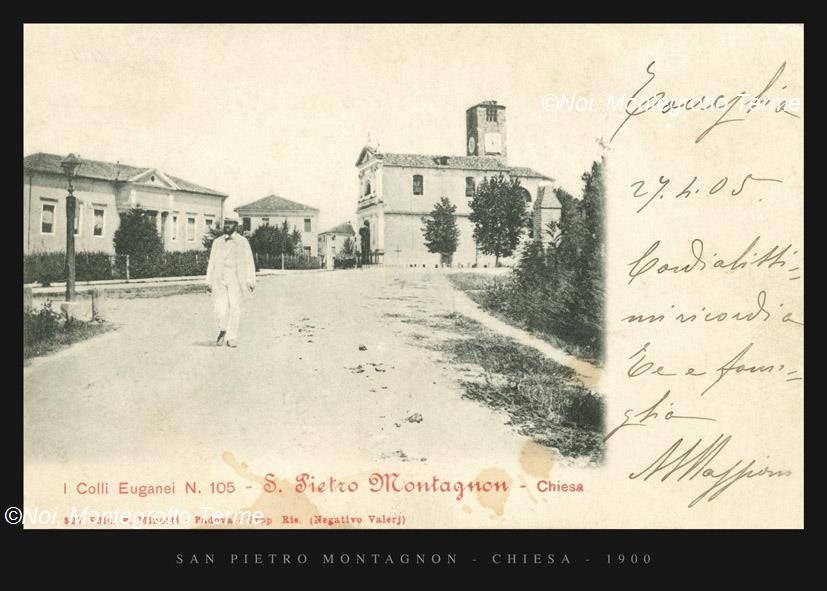 ©Noi, Montegrotto Terme
27.4.05.
Cordialitti=
mi ricordi a
Te e fami=
glia
I Colli Euganei N. 105 - S. Pietro Montagnon - Chiesa
©Noi, Montegrotto Terme
Padova Rip. Ris. (Negativo Valerj)
SAN PIETRO MONTAGNON - CHIESA - 1900